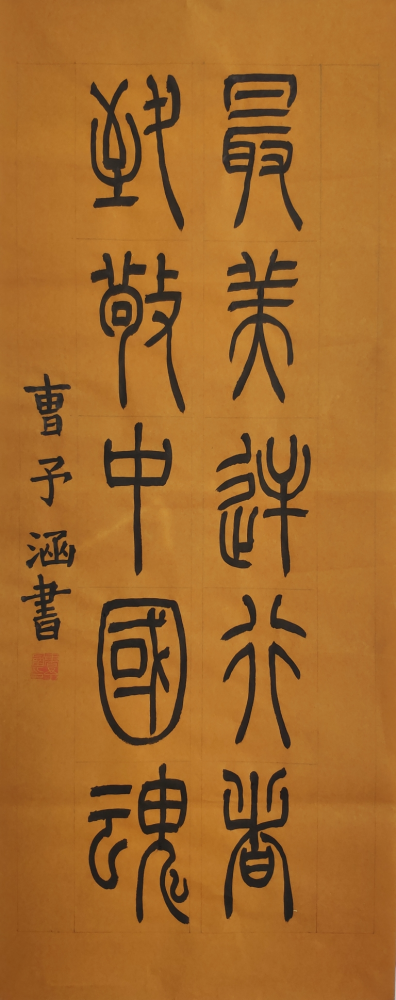 最美逆行者
致敬中國魂
曹予涵書